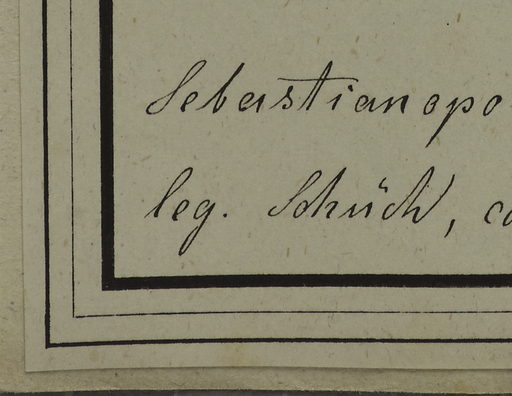 Sebastianopo
leg. Schüch, co